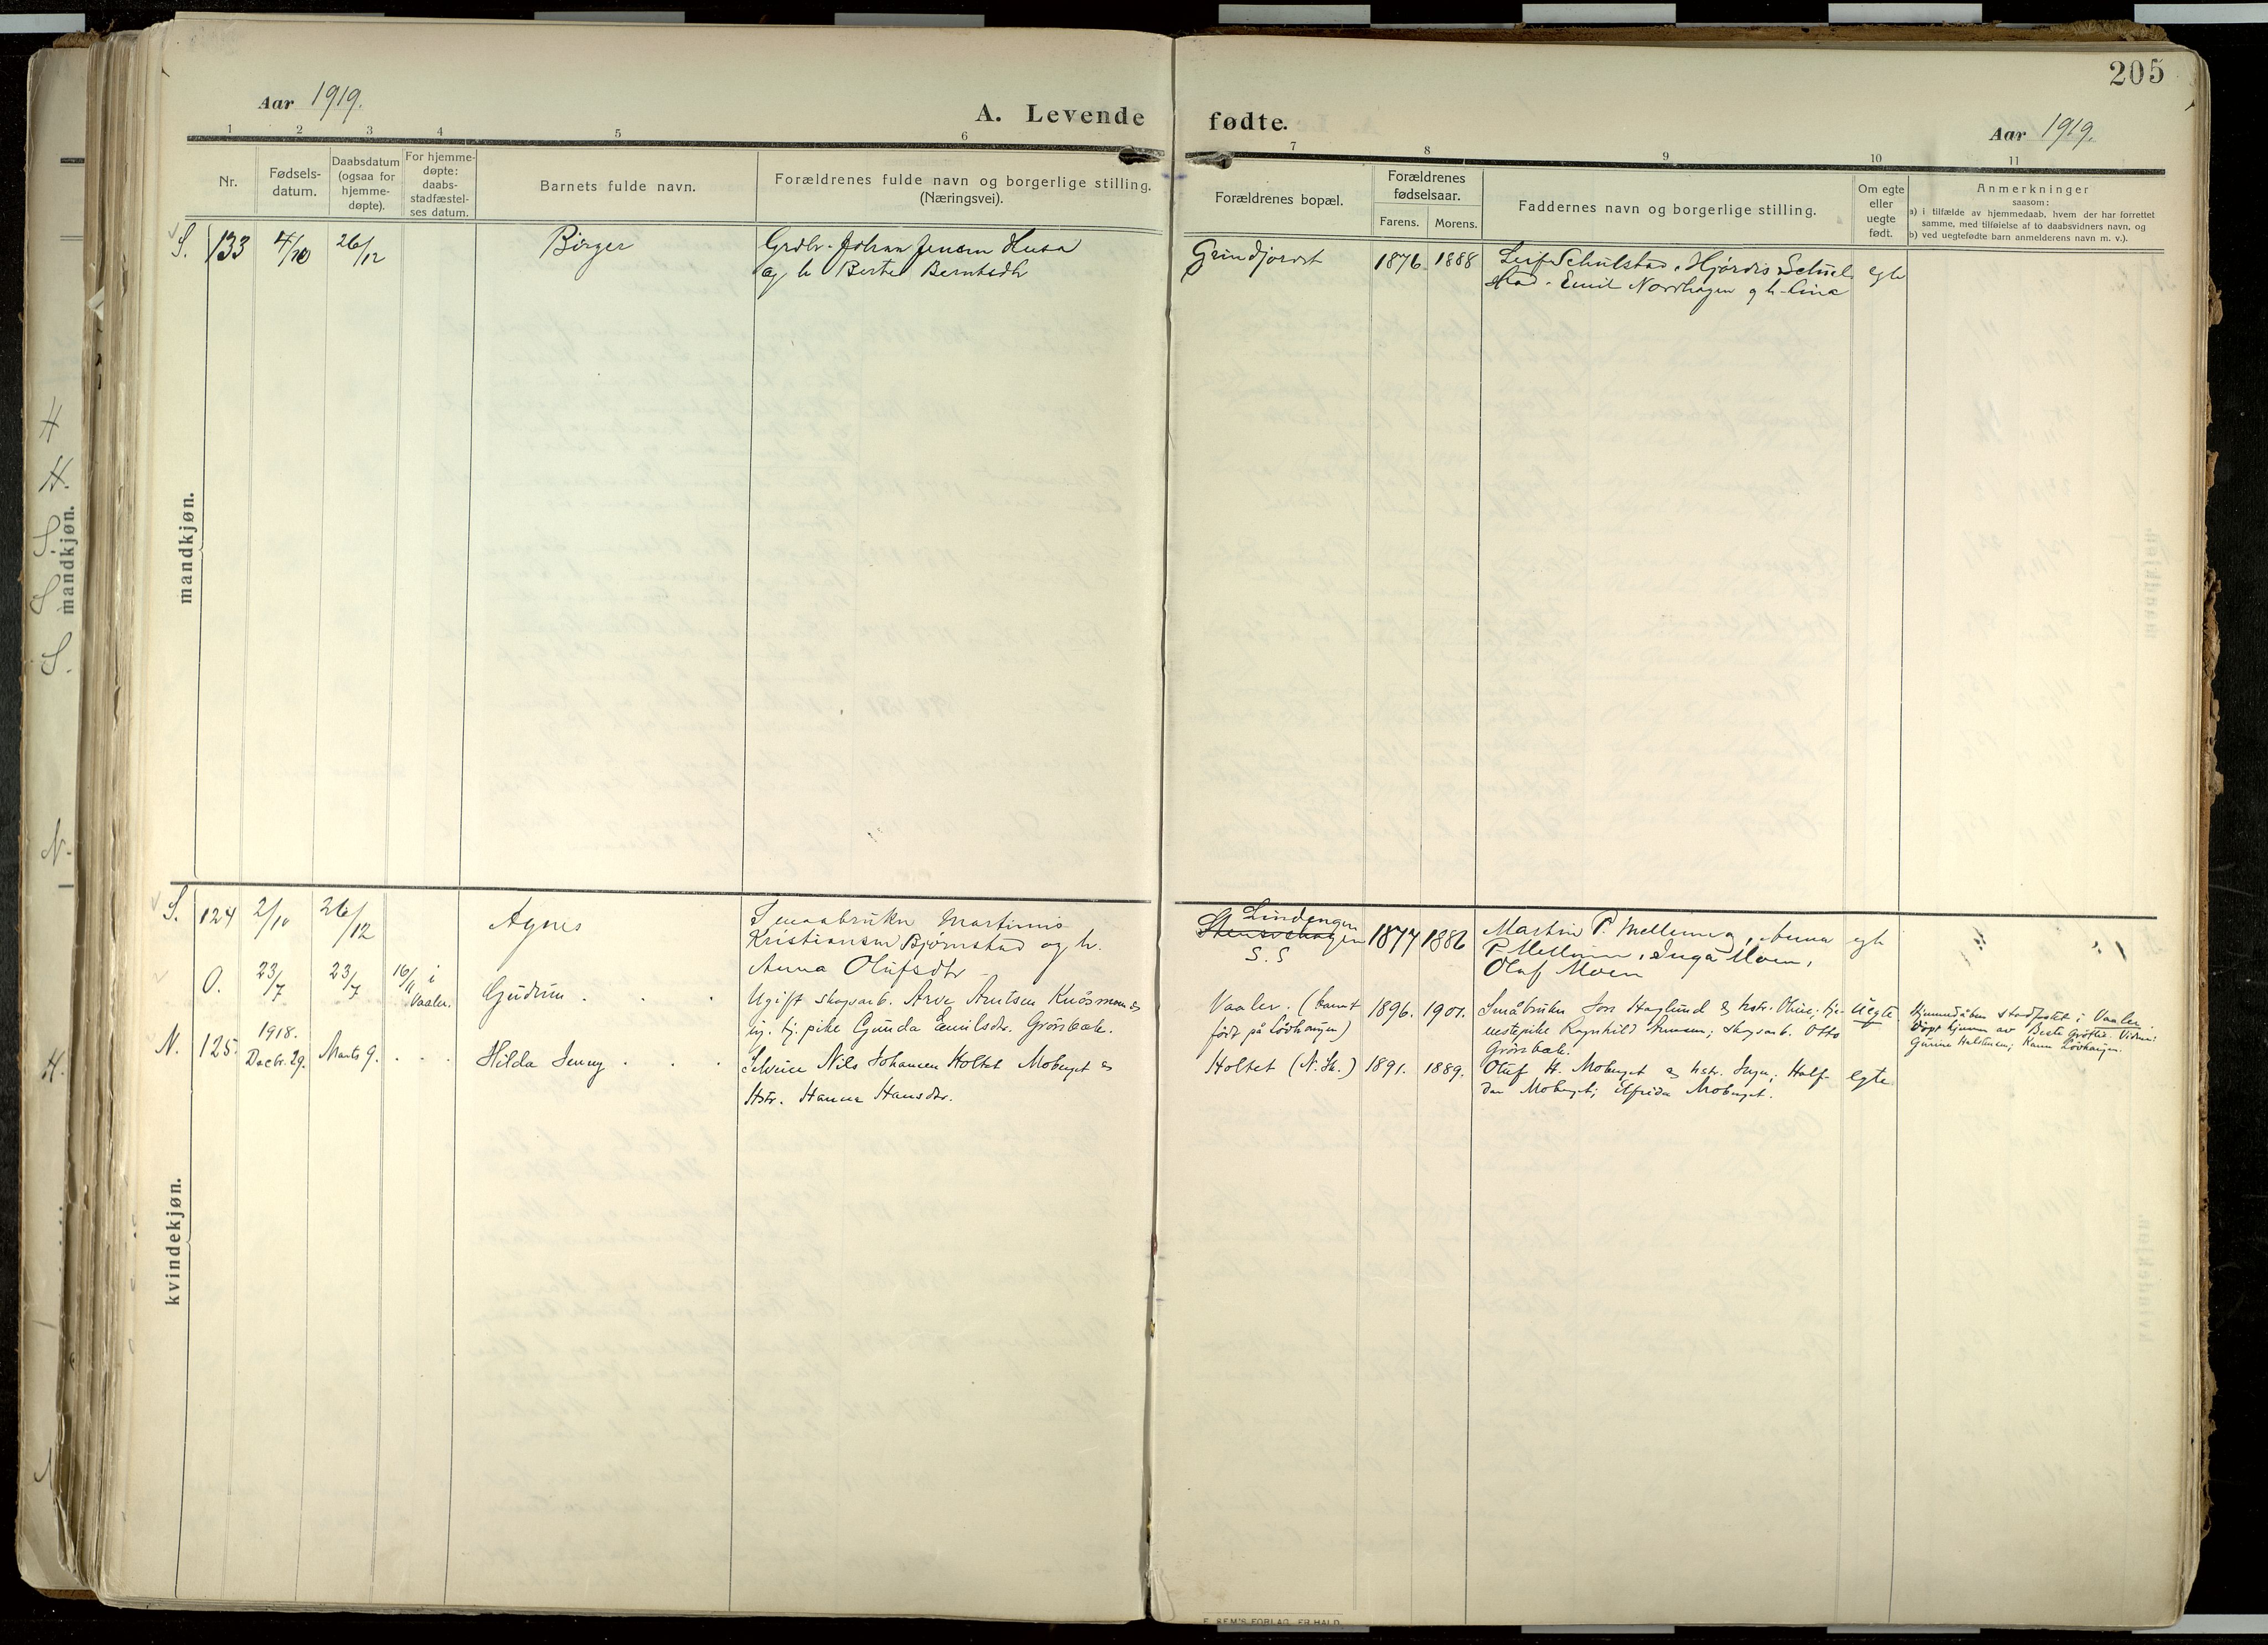 205
Aar 1919.
A. Levende fødte.
Aar 1919.
1 2 3 4 5 6 7 8 9 10 11
Nr.
Fødsels-
datum.
Daabsdatum
(ogsaa for
hjemme-
døpte).
For hjemme-
døpte:
daabs-
stadfæstel-
ses datum.
Barnets fulde navn.
Forældrenes fulde navn og borgerlige stilling.
(Næringsvei).
Forældrenes bopæl.
Forældrenes
fødselsaar.
Farens. Morens.
Faddernes navn og borgerlige stilling.
Om egte
eller
uegte
født.
Anmerkninger
saasom:
a) i tilfælde av hjemmedaab, hvem der har forrettet
samme, med tilføielse af to daabsvidners navn, og
b) ved uegtefødte barn anmelderens navn m. v.).
mandkjøn.
S. 133 4/10 26/12 Birger
Grdbr. Johan Jensen Husa
og h Berte Berntsdtr
Grindjordet 1876 1888
Leif Schulstad, Hjørdis Schul
stad. Emil Nordhagen og h. Lina
egte
kvindekjøn.
S. 124 2/10 26/12 Agnes
Smaabruker Martinius
Kristiansen Bjørnstad og h.
Anna Olufsdtr
Lindengen
S. S
1877 1886
Martin P. Mellem, Anna
P. Mellem, Inga Moen,
Olaf Moen
egte
O. 23/7 23/7 16/11 i
Vaaler.
Gudrun
Ugift skogsarb. Arve Arntsen Knösmoen &
ug. tj. pike Gunda Emilsdr. Grönbæk.
Vaaler. (barnet
födt på Lövhaugen)
1896. 1901.
Småbruker Jon Haglund & hstr. Oline; tje-
nestepike Ragnhild; skogsarb. Otto
Grönbæk.
Uegte
Hjemmedåben stadfæstet i Vaaler.
Döpt hjemme av Berte Vidner:
Gurine Halvorsen; Karen Lövhaugen.
N. 125. 1918.
Decbr. 29. Marts 9.
Hilda Jenny
Selveier Nils Johansen Holtet Moberget &
Hstr. Hanna Hansdr.
Holtet (N. Sk.) 1891. 1889.
Oluf H. Moberget & hstr. Inga; Half-
dan Moberget; Elfrida Moberget.
egte
E. SEM'S FORLAG, FR.HALD
H
H.
S
S
S.
mandkjøn.
N.
H.